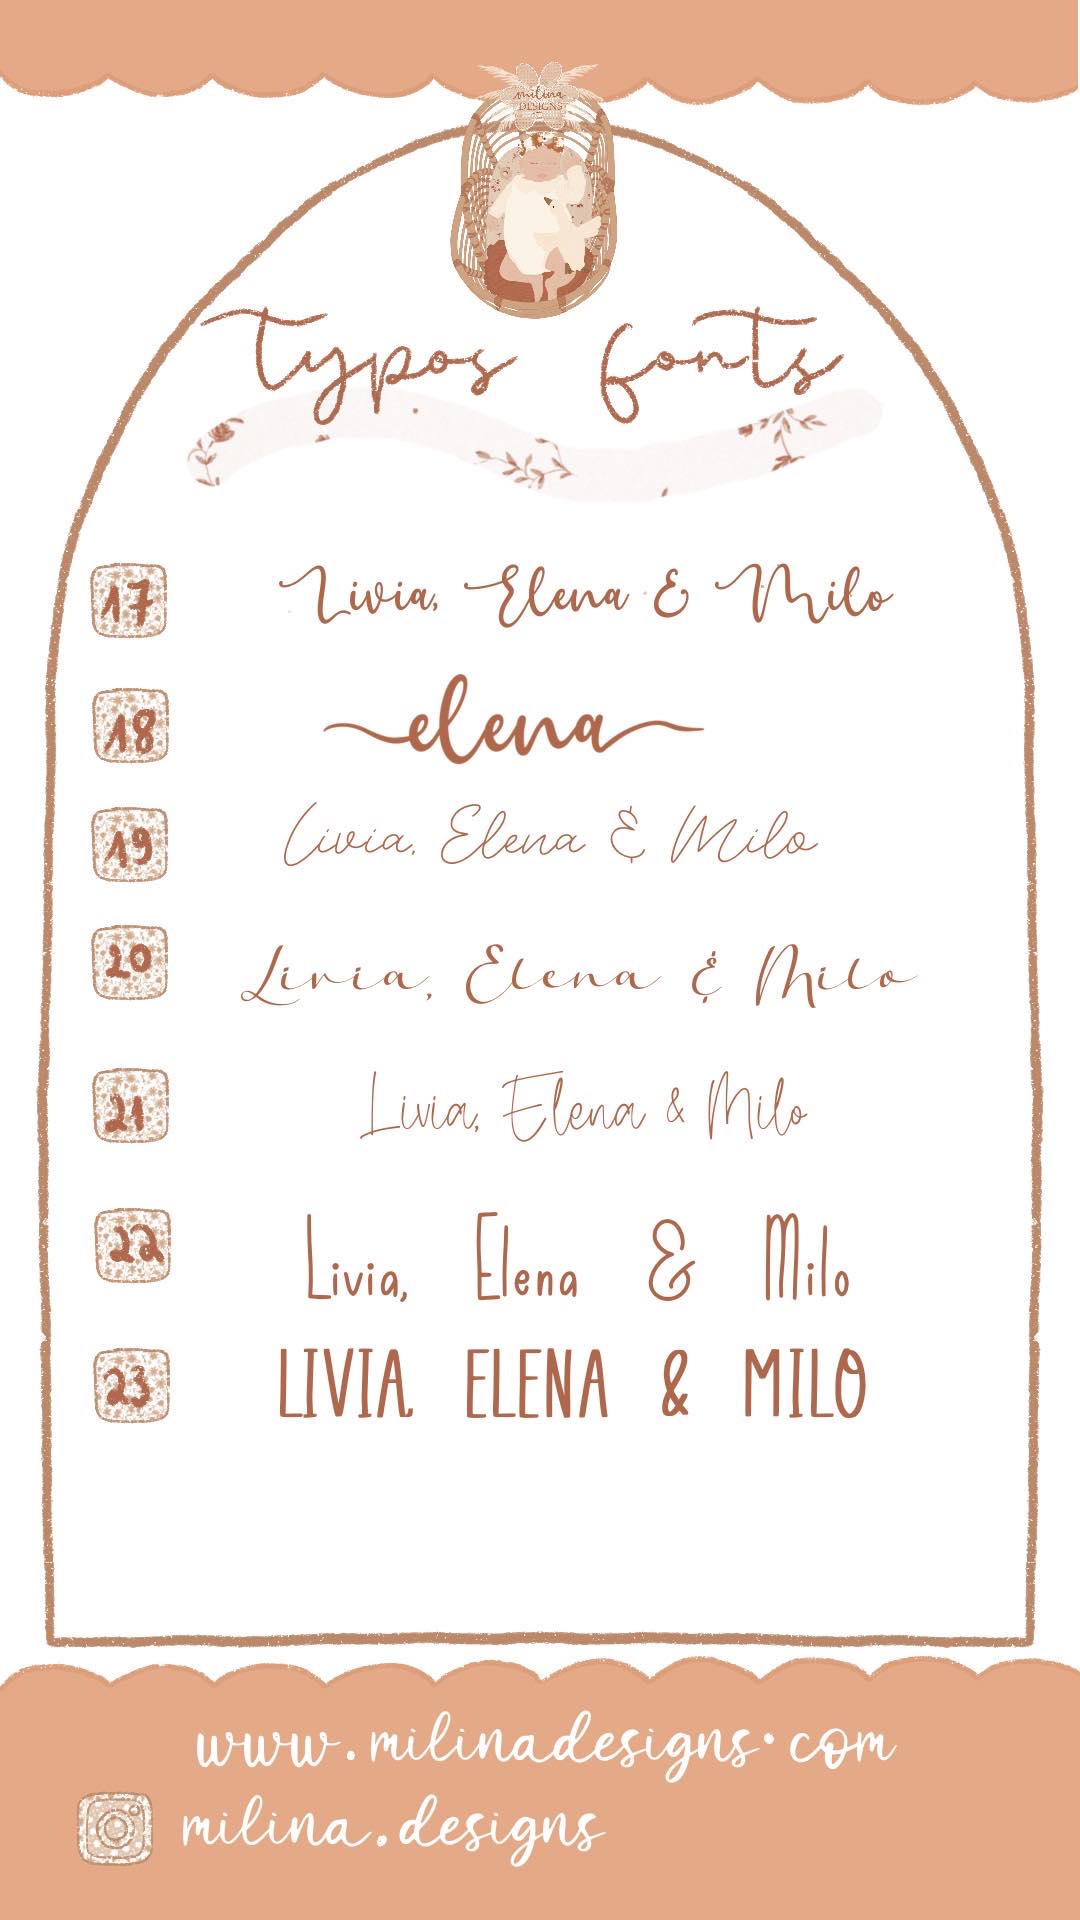 milina
DESIGNS
typos fonts
17 Livia, Elena & Milo
18 elena
19 Livia, Elena & Milo
20 Livia, Elena & Milo
21 Livia, Elena & Milo
22 Livia, Elena & Milo
23 LIVIA, ELENA & MILO
www.milinadesigns.com
milina.designs